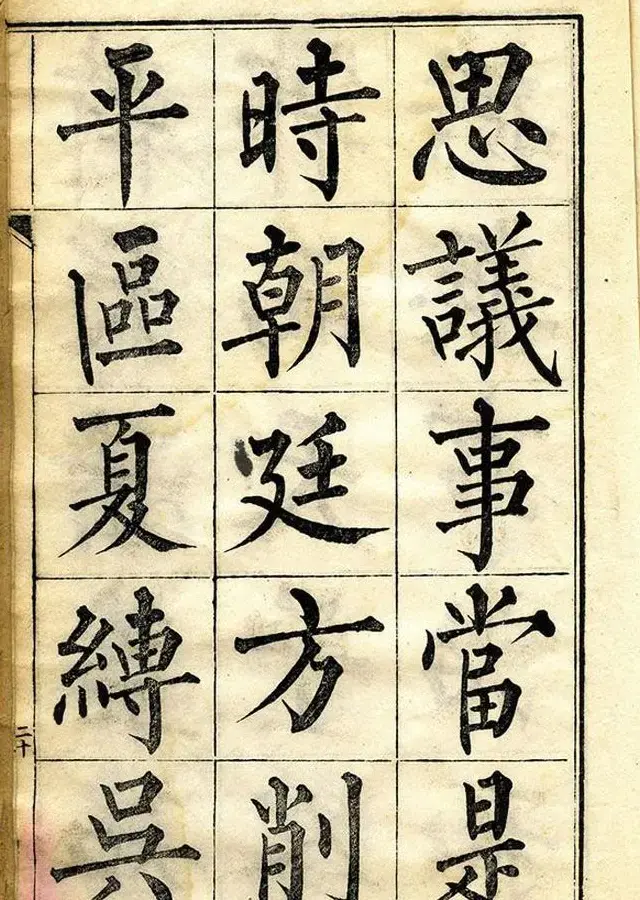 思議事當是
時朝廷方削
平區夏縛吳
二十